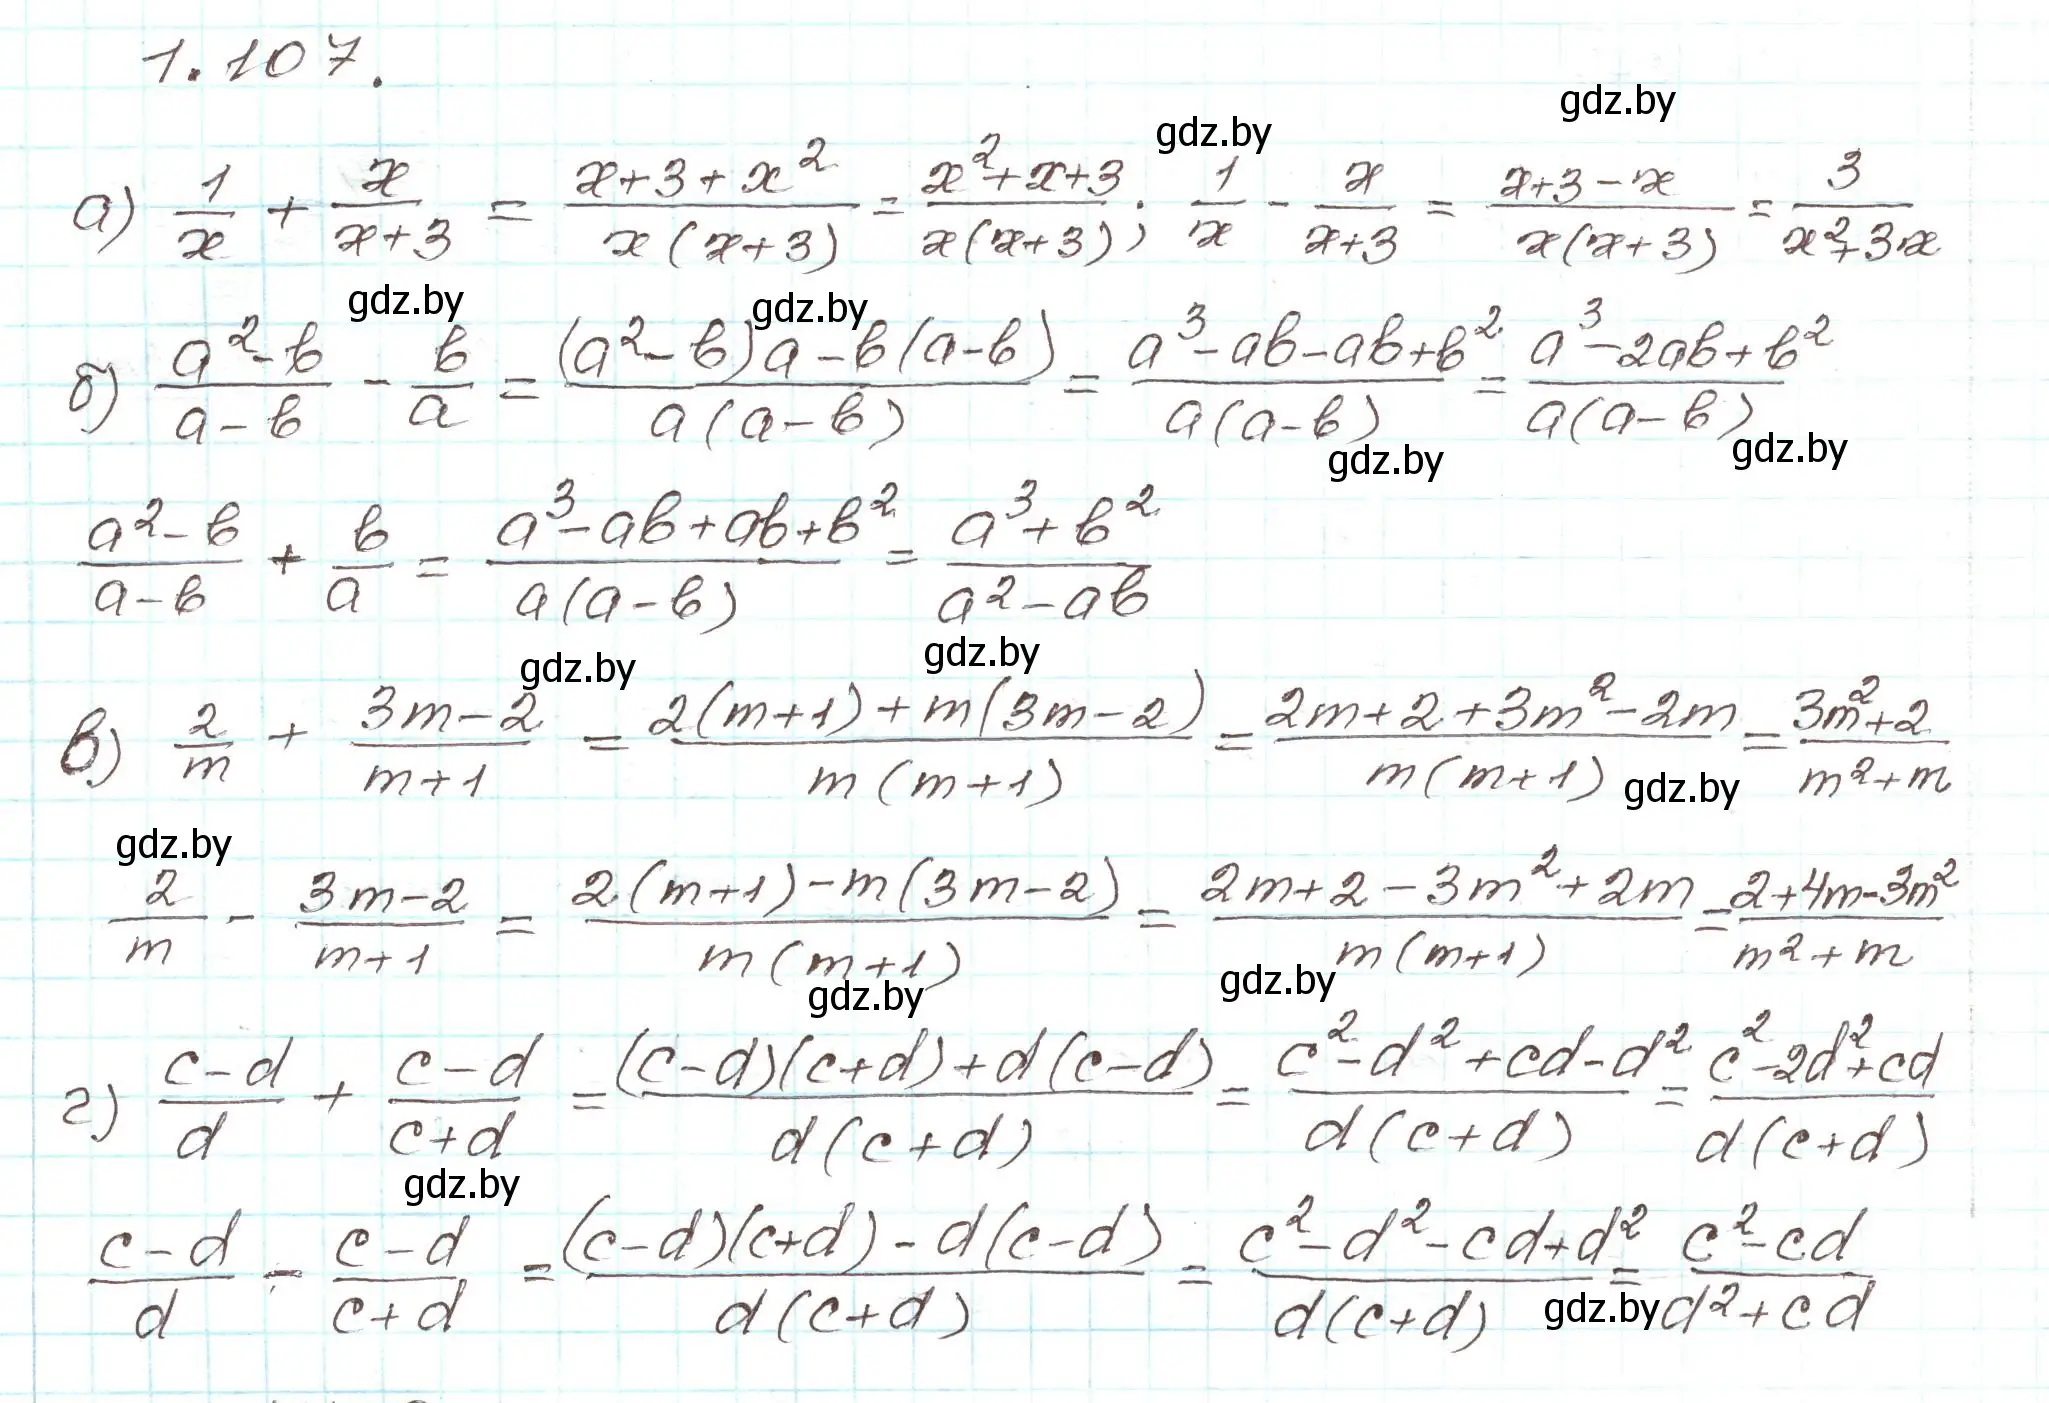 1.107.
gdz.by
gdz.by
а) 1/x + x/(x+3) = (x+3+x²)/(x(x+3)) = (x²+x+3)/(x(x+3)); 1/x - x/(x+3) = (x+3-x)/(x(x+3)) = 3/(x²+3x)
gdz.by gdz.by
б) (a²-b)/(a-b) - b/a = ((a²-b)a-b(a-b))/(a(a-b)) = (a³-ab-ab+b²)/(a(a-b)) = (a³-2ab+b²)/(a(a-b))
gdz.by gdz.by
(a²-b)/(a-b) + b/a = (a³-ab+ab+b²)/(a(a-b)) = (a³+b²)/(a²-ab)
gdz.by gdz.by
в) 2/m + (3m-2)/(m+1) = (2(m+1)+m(3m-2))/(m(m+1)) = (2m+2+3m²-2m)/(m(m+1)) = (3m²+2)/(m²+m)
gdz.by
gdz.by
2/m - (3m-2)/(m+1) = (2(m+1)-m(3m-2))/(m(m+1)) = (2m+2-3m²+2m)/(m(m+1)) = (2+4m-3m²)/(m²+m)
gdz.by gdz.by
г) (c-d)/d + (c-d)/(c+d) = ((c-d)(c+d)+d(c-d))/(d(c+d)) = (c²-d²+cd-d²)/(d(c+d)) = (c²-2d²+cd)/(d(c+d))
gdz.by
(c-d)/d - (c-d)/(c+d) = ((c-d)(c+d)-d(c-d))/(d(c+d)) = (c²-d²-cd+d²)/(d(c+d)) = (c²-cd)/(d²+cd)
gdz.by